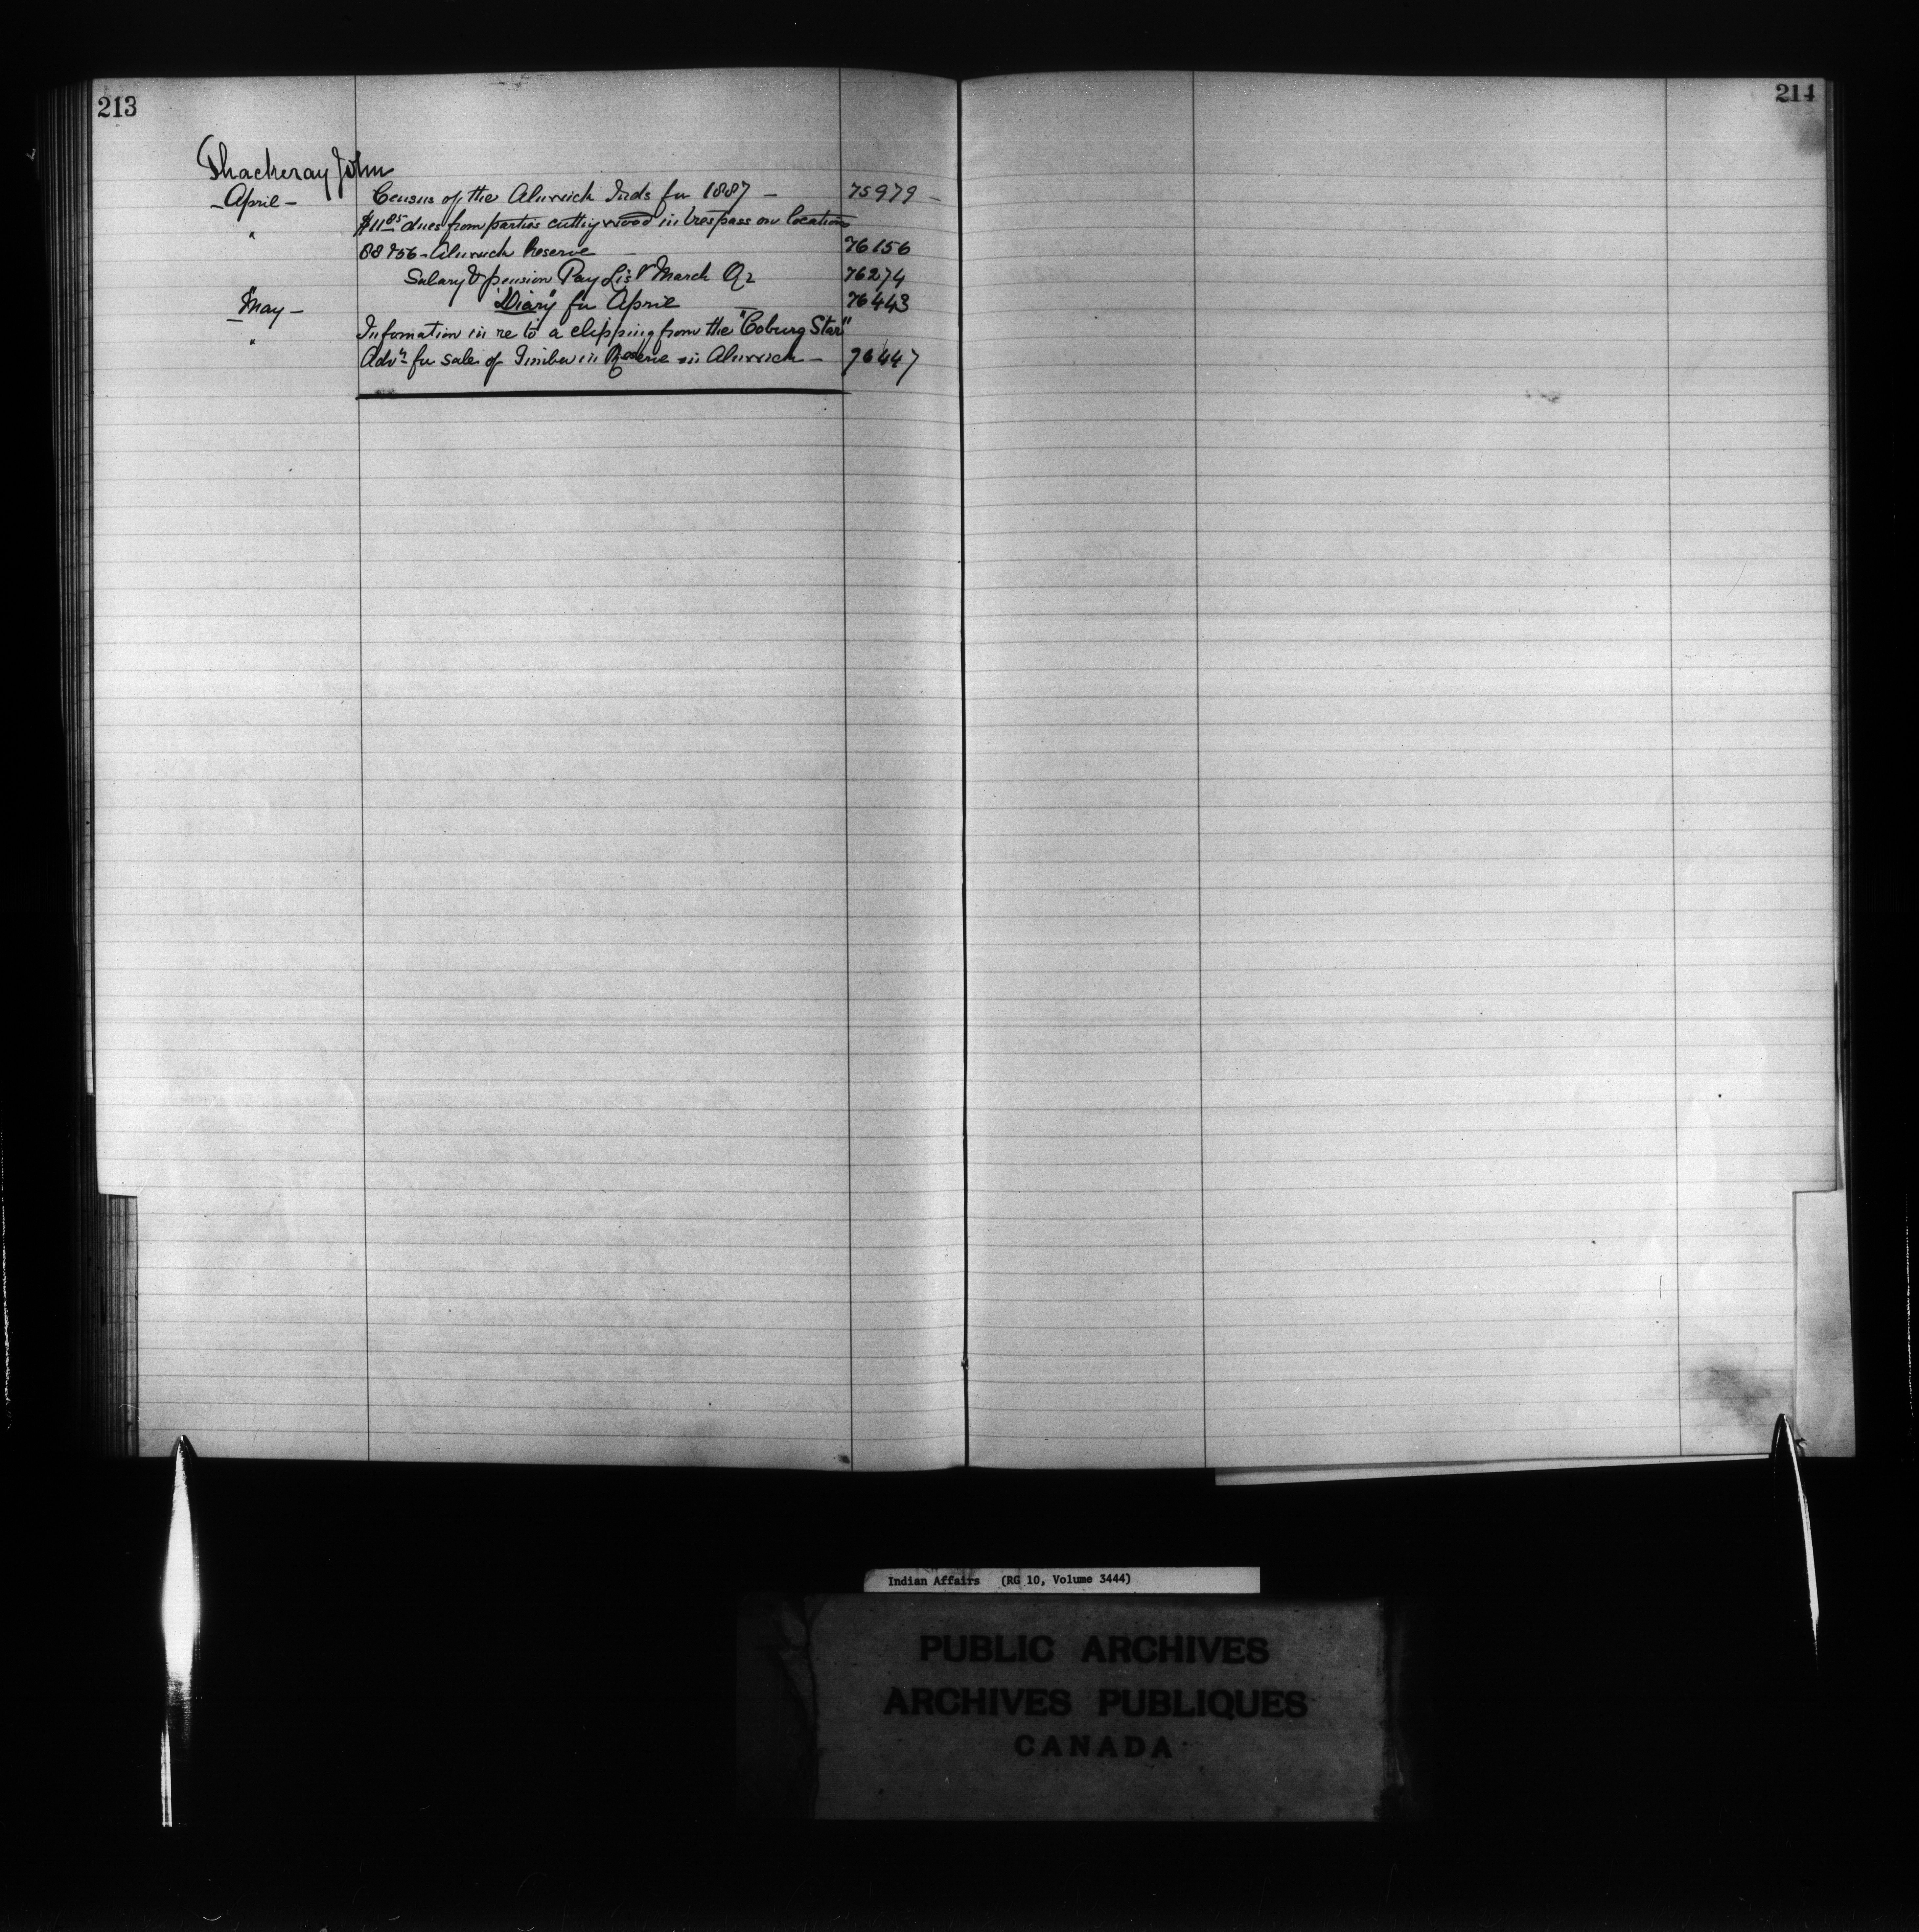 213
214
Thackeray John
- April - Census of the Alnwick Inds for 1887 - 75979 -
" $11 85 dues from parties cutting wood in trespass on locations
Alnwick Reserve 76156
Salary & pension Pay List March Qr 76274
May - "Diary" for April 76443
" Information in re to a clipping from the "Coburg Star"
Advt for sale of Timber in Reserve in Alnwick - 76447
Indian Affairs (RG 10, Volume 3444)
PUBLIC ARCHIVES
ARCHIVES PUBLIQUES
CANADA